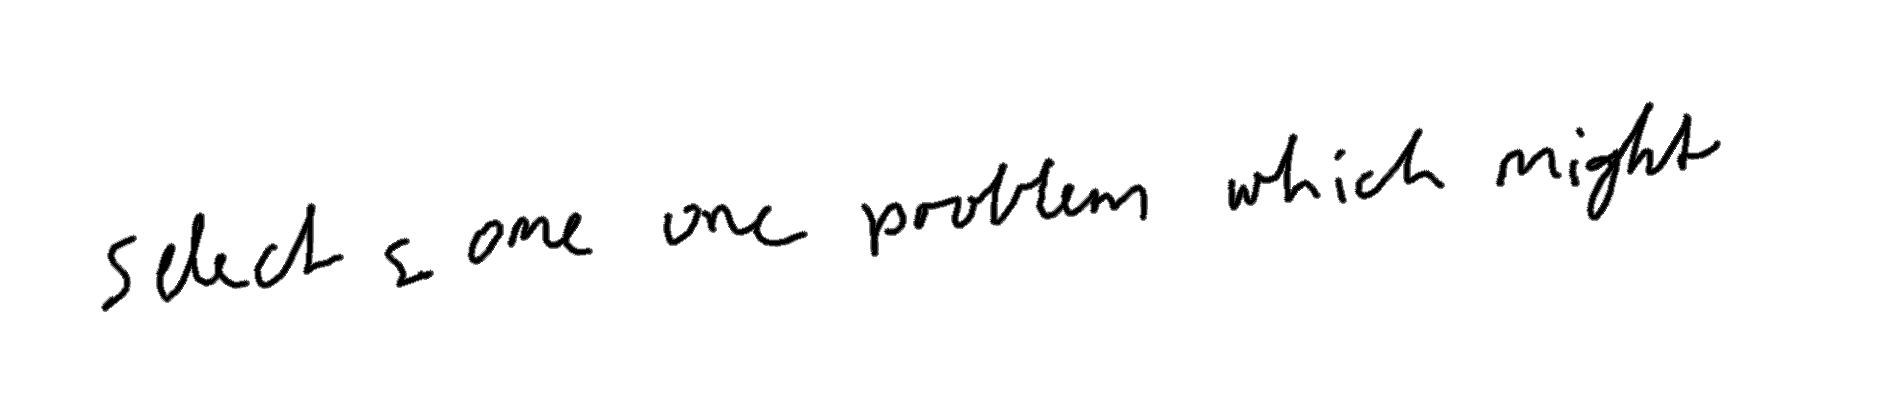 select some one problem which might